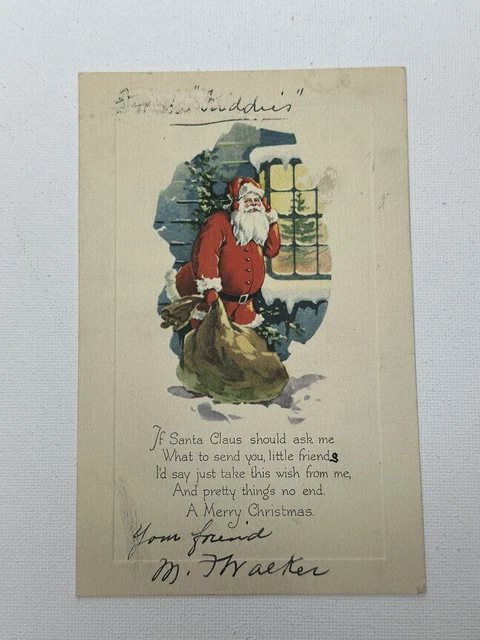 "Kiddies"
If Santa Claus should ask me
What to send you, little friends
I'd say just take this wish from me,
And pretty things no end.
A Merry Christmas.
Your friend
M. F Walker